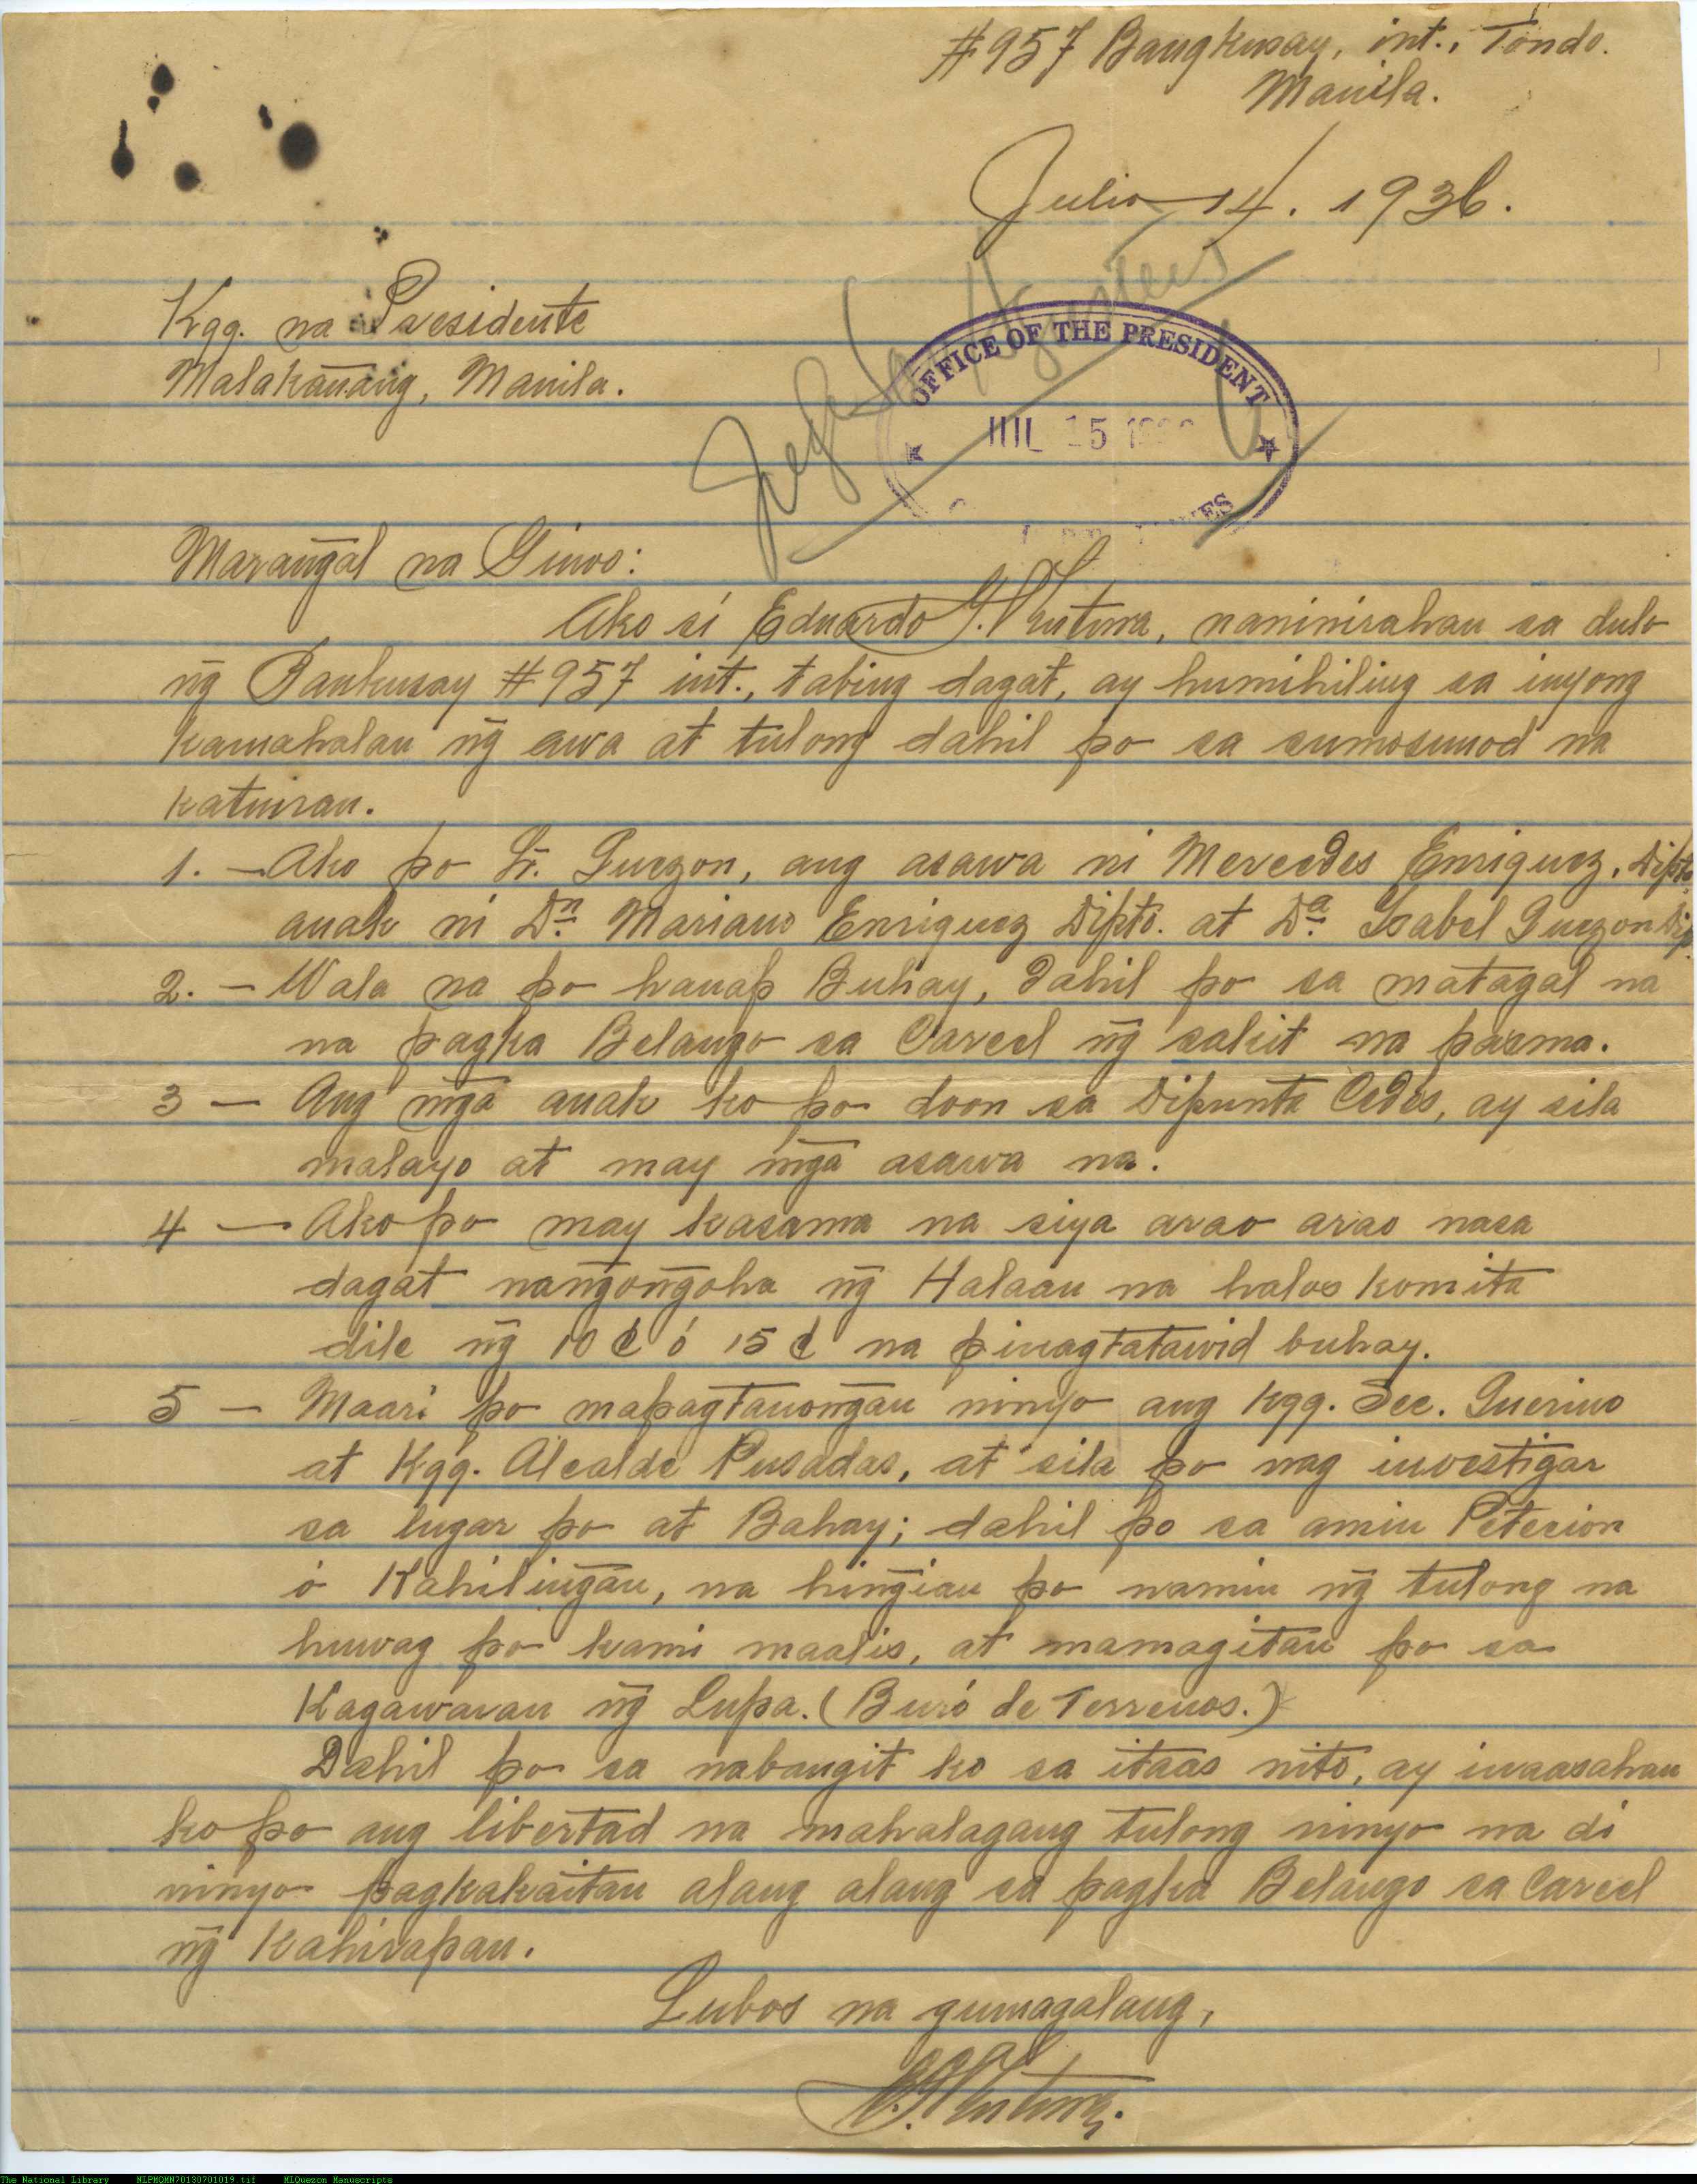 #957 Bangkusay, int., Tondo.
Manila.
Julio 14. 1936.
Kgg. na Presidente
Malakan̄ang, Manila.
OFFICE OF THE PRESIDENT
JUL 15 1936
Maran̄gal na Ginoo:
Ako si Eduardo naninirahan sa dulo
n̄g Bankusay #957 int., tabing dagat, ay humihiling sa inyong
kamahalan n̄g awa at tulong dahil po sa sumosunod na
katuiran.
1. - Ako po Sr. Quezon, ang asawa ni Mercedes Enriquez, Dipta.
anak ni Dn. Mariano Enriquez Dipto. at Da. Isabel Quezon Dip.
2. - Wala na po hanap Buhay, dahil po sa matagal na
na pagka Belango sa Carcel n̄g sakit na pasma.
3 - Ang mn̄ga anak ko po doon sa Dipunta Cedes, ay sila
malayo at may mn̄ga asawa na.
4 - Ako po may kasama na siya arao arao nasa
dagat nan̄gon̄goha n̄g Halaan na halos komita
dile n̄g 10 ¢ ó 15 ¢ na pinagtatawid buhay.
5 - Maari po mapagtanon̄gan ninyo ang Kgg. Sec. Quirino
at Kgg. Alcalde Pusadas, at sila po nag investigar
sa lugar po at Bahay; dahil po sa amin Peticion
ó Kahilin̄gan, na hin̄gian po namin n̄g tulong na
huwag po kami maalis, at mamagitan po sa
Kagawaran n̄g Lupa. (Buró de Terrenos.)
Dahil po sa nabangit ko sa itaas nito, ay inaasahan
ko po ang libertad na mahalagang tulong ninyo na di
ninyo pagkakaitan alang alang sa pagka Belango sa Carcel
n̄g Kahirapan.
Lubos na gumagalang,
The National Library NLPMQMN70130701019.tif MLQuezon Manuscripts